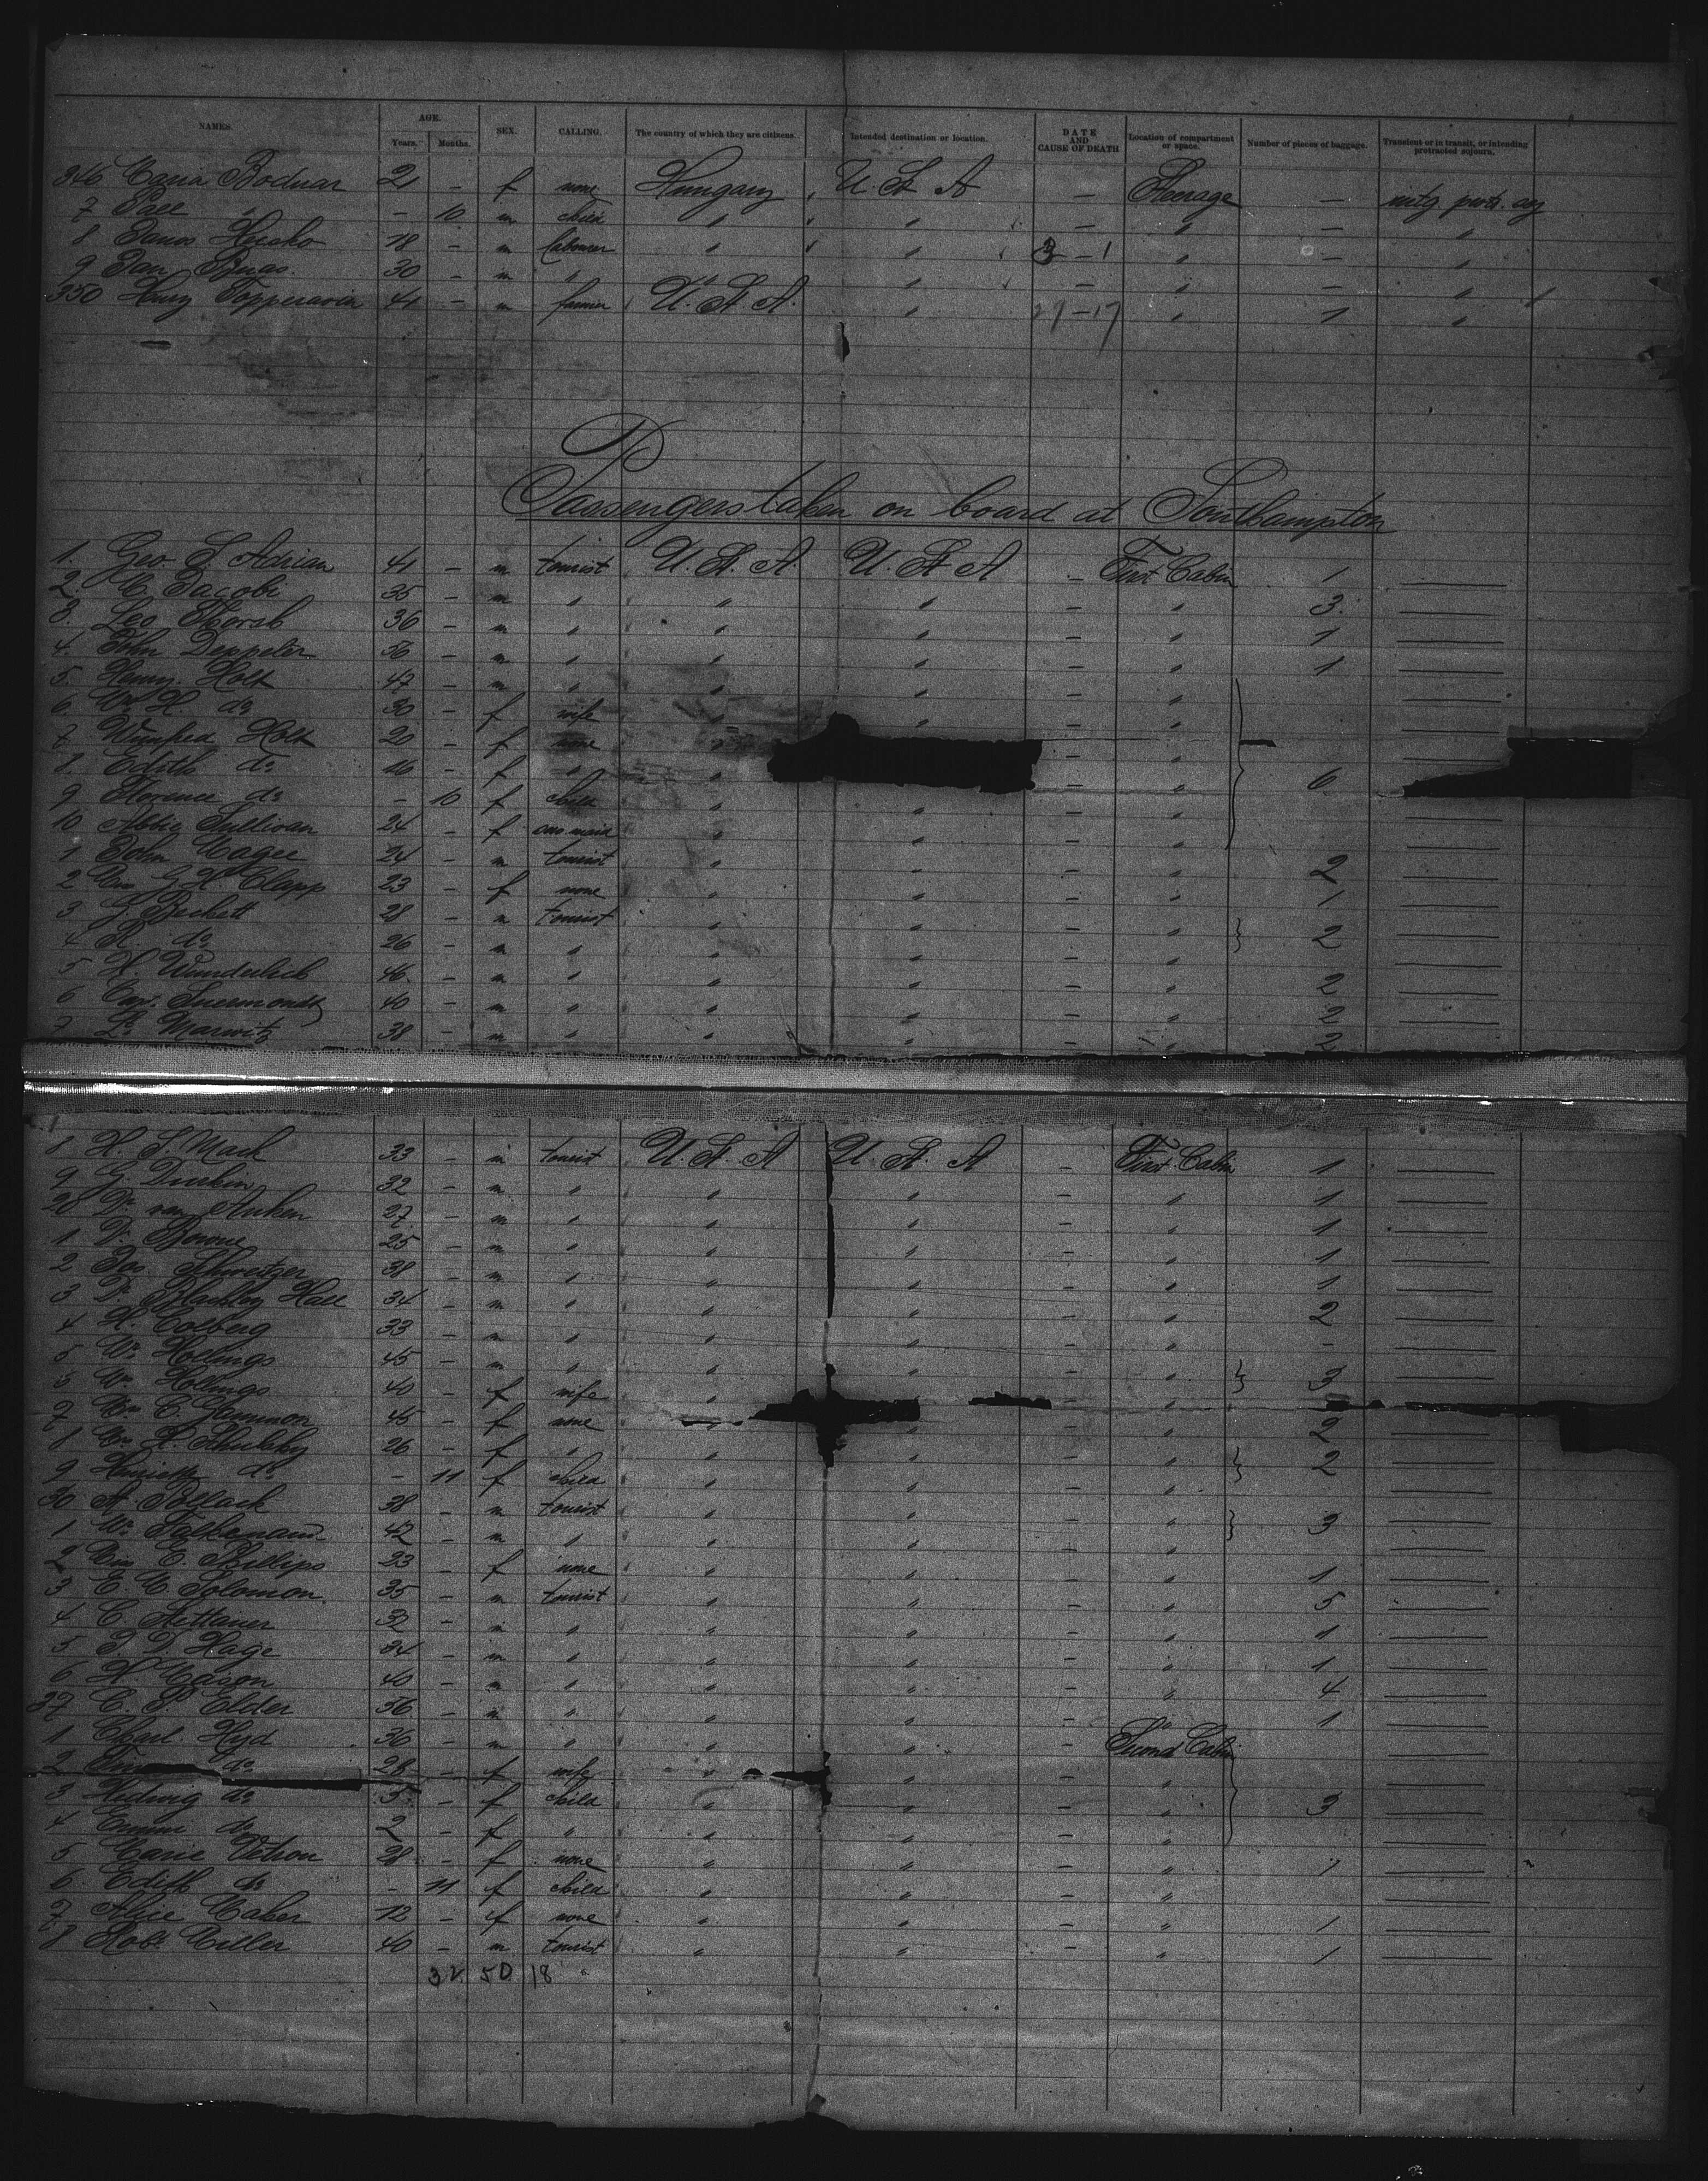 NAMES. AGE. Years. Months. SEX. CALLING. The country of which they are citizens. Intended destination or location. DATE AND CAUSE OF DEATH Location of compartment or space. Number of pieces of baggage. Transient or in transit, or intending protracted sojourn.
346 Maria Bodnar 21 - f none Hungary U.S.A - Steerage -
7 Paul " - 10 m child " " " - "
8 Janos 18 - m labourer " " 3 - 1 " - "
9 Jan 30 - m " " " " - "
350 41 - m farmer U.S.A. " 27-17 " 1 "
Passengers taken on board at Southampton
1. Geo S. Adrian 41 - m tourist U.S.A. U.S.A - First Cabin 1
2. M. Jacobi 35 - m " " " - " 3.
3. Leo 36 - m " " " - " 1
4. John Deppeler 36 - m " " " - " 1
5. Henry Holt 47 - m " " " - "
6. Mrs H do 30 - f wife " " - "
7 Winifred Holt 20 - f none " - "
8. Edith do 16 - f " " - " 6
9 Florence do - 10 f child " " - "
10 Abbie Sullivan 24 - f maid " " - "
1 John Magee 24 - m tourist " " - " 2
2 Mrs G. H. Clapp 23 - f none " " - " 1
3 G. Beckett 28 - m tourist " " - " 2
4 R. do 26 - m " " " - "
5 H. Wunderlich 46 - m " " " - " 2
6 Suermondt 40 - m " " " - " 2
7 L. Marwitz 38 - m " " " " 2
8 H. S. Mack 33 - m tourist U.S.A U.S.A - First Cabin 1
9 G. Durkin 32 - m " " " - " 1
20 Dr van Auken 27 - m " " " - " 1
1 D. Bowne 25 - m " " " - " 1
2 Jos. Schweitzer 38 - m " " " - " 1
3 Dr Hall 34 - m " " " - " 2
4 H. Colberg 33 - m " " " - " -
5 Mr Hollings 45 - m " " " - " 3
6 Mrs Hollings 40 - f wife " "
7 Mrs C. Gammon 45 - f none " " - " 2
8 Mrs A. 26 - f " " " - " 2
9 Henrietta do - 11 f child " " - "
30 A. Pollack 38 - m tourist " " - " 3
1 Wm 42 - m " " " - "
2 Miss E. Phillips 23 - f none " " - " 1
3 E. M. Solomon. 35 - m tourist " " - " 5
4 C. Stettauer 32 - m " " " - " 1
5 J. D. Hage 34 - m " " " - " 1
6 H 40 - m " " " - " 4
37 C. P. Elder 56 - m " " " - " 1
1 Charl. Heyd 36 - m " " " - Second Cabin
2 do 28 - f wife " " - "
3 Hedwig do 5 - f child " " - " 3
4 Emmi do 2 - f " " " - "
5 Marie 28 - f none " " - " 1
6 Edith do - 11 f child " " - "
7 Alice Maher 12 - f none " " - " 1
8 Robt Miller 40 - m tourist " " - " 1
32 50 18